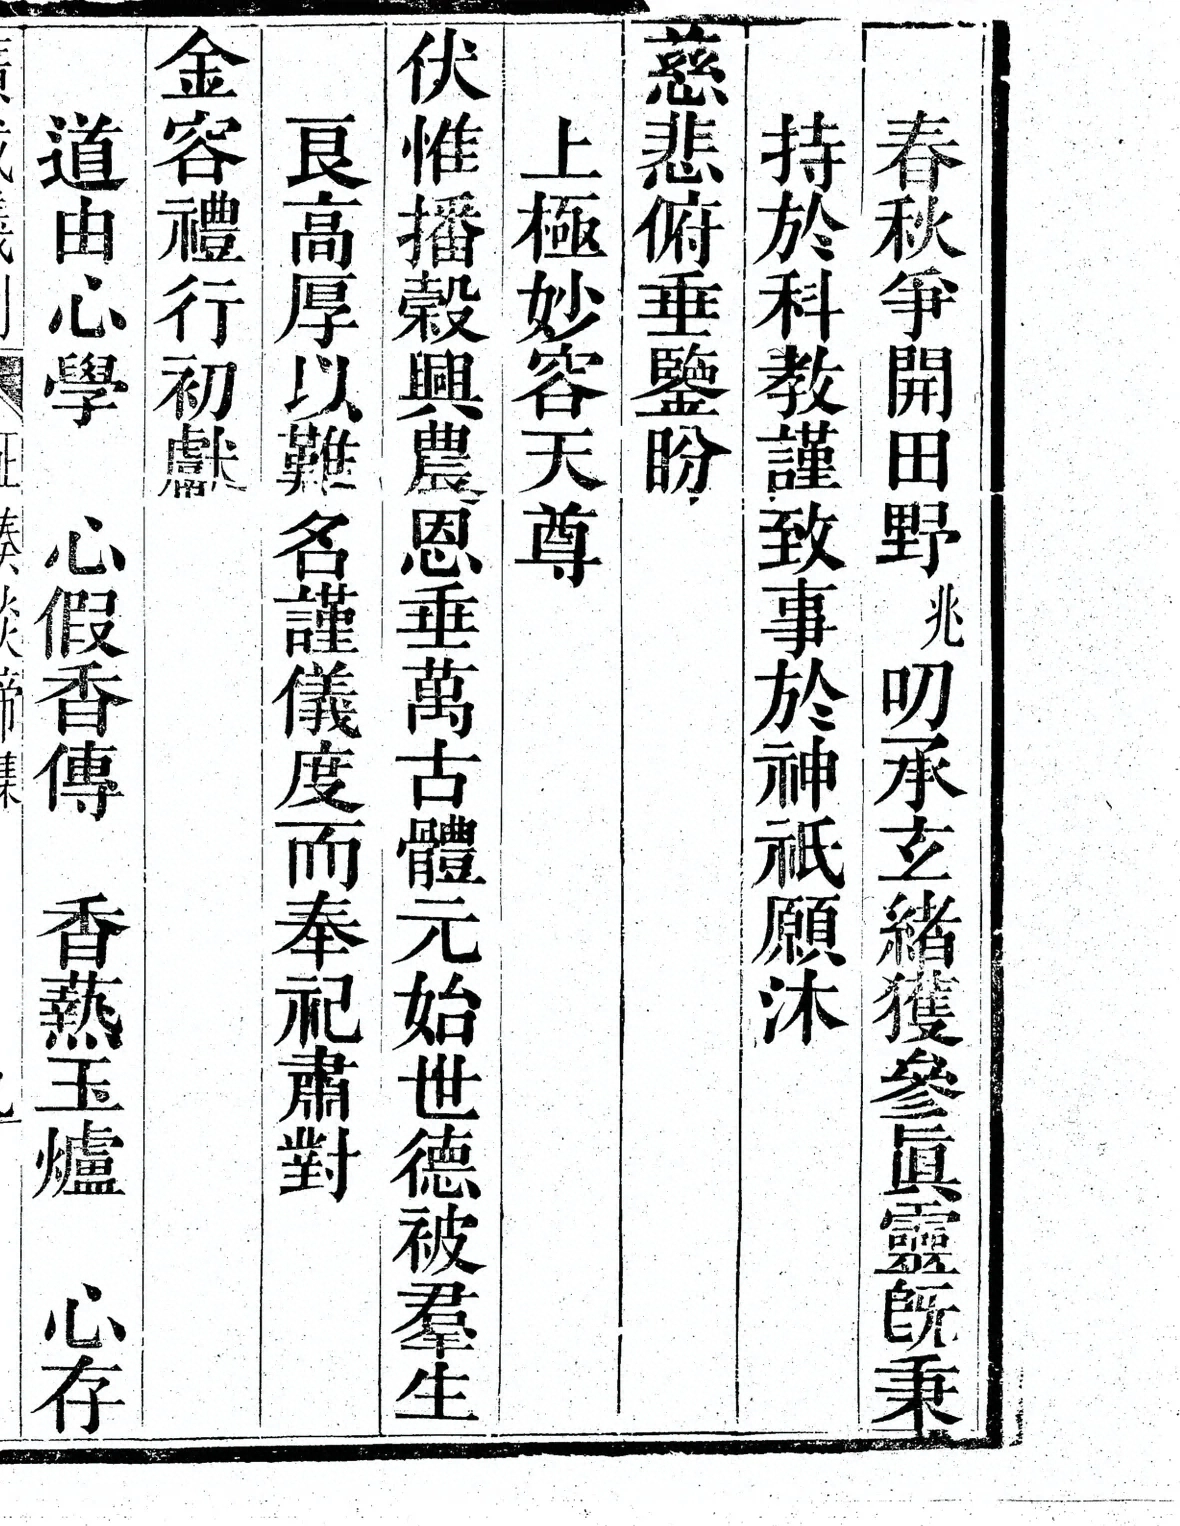 春秋爭開田野兆叨承玄緒獲參眞靈旣秉
持於科教謹致事於神祇願沐
慈悲俯垂鑒盼
上極妙容天尊
伏惟播穀興農恩垂萬古體元始世德被羣生
艮高厚以難名謹儀度而奉祀肅對
金容禮行初獻
道由心學 心假香傳 香爇玉爐 心存